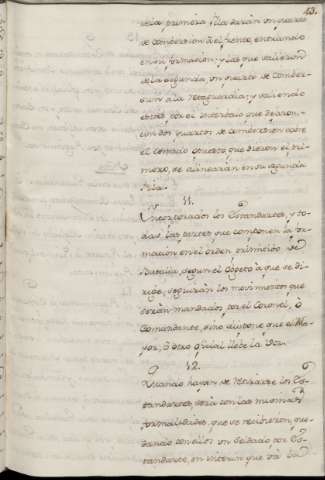 13.
de la primera fila darán un quarto
de combersion de el frente, entrando
en su formacion; y las que salieron
de la segunda un quarto de comber-
sion a la retaguardia; y saliendo
estos por el intervalo que
dos quartos de combersion sobre
el costado opuesto, que dieron el pri-
mero, se alinearán en su segunda
fila.
11.
Incorporados los Estandartes, y to-
das las partes que componen la for-
macion en el orden primitivo de
Batalla, segun el objeto à que se di-
rige, seguirán los movimientos que
serán mandados por el Coronel, ò
Comandante, sino dispone que el Ma-
yor, ò otro oficial lleve la voz.
12.
Quando hayan de retirarse los Es-
tandartes, será con las mismas
formalidades, que se recibieron, que-
dando con ellos un Soldado por Es-
tandarte, en interin que